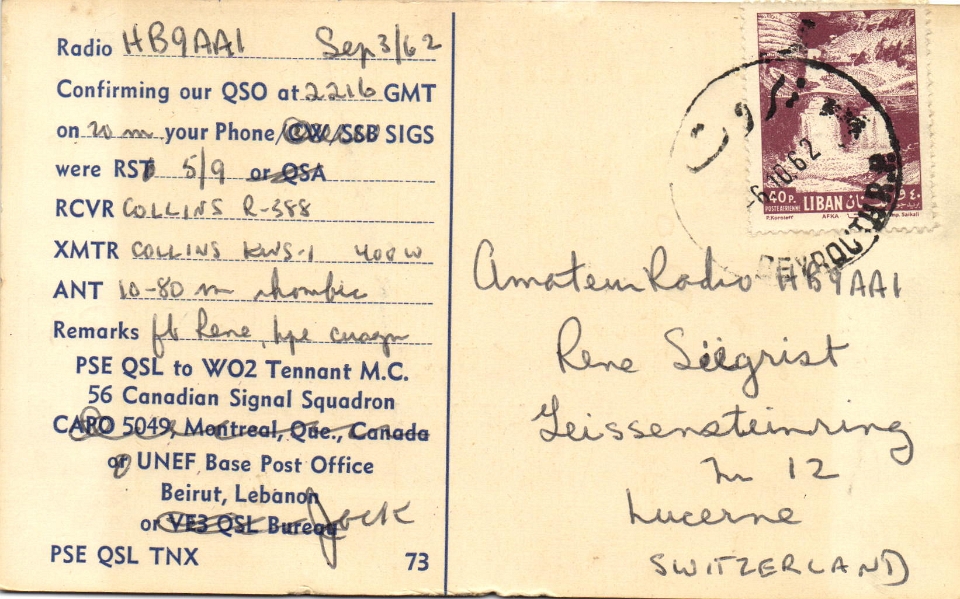 Radio HB9AA1 Sep 3/62
Confirming our QSO at 2216 GMT
on 20 m your Phone CW SSB SIGS
were RST 5/9 or QSA
RCVR COLLINS R-388
XMTR COLLINS KWS-1 400 W
ANT 10-80 m rhombic
Remarks fb Rene, hpe cuagn
PSE QSL to WO2 Tennant M.C.
56 Canadian Signal Squadron
CAPO 5049, Montreal, Que., Canada
or UNEF Base Post Office
Beirut, Lebanon
or VE3 QSL Bureau
Jock
PSE QSL TNX 73
بيروت
-6.10.62
BEYROUTH R.P.
40 P. LIBAN لبنان ٤٠
POSTE AERIENNE
P.Koroleff AFKA Imp. Saikali
Amateur Radio HB9AA1
Rene Siegrist
Geissensteinring
Nr 12
Lucerne
SWITZERLAND